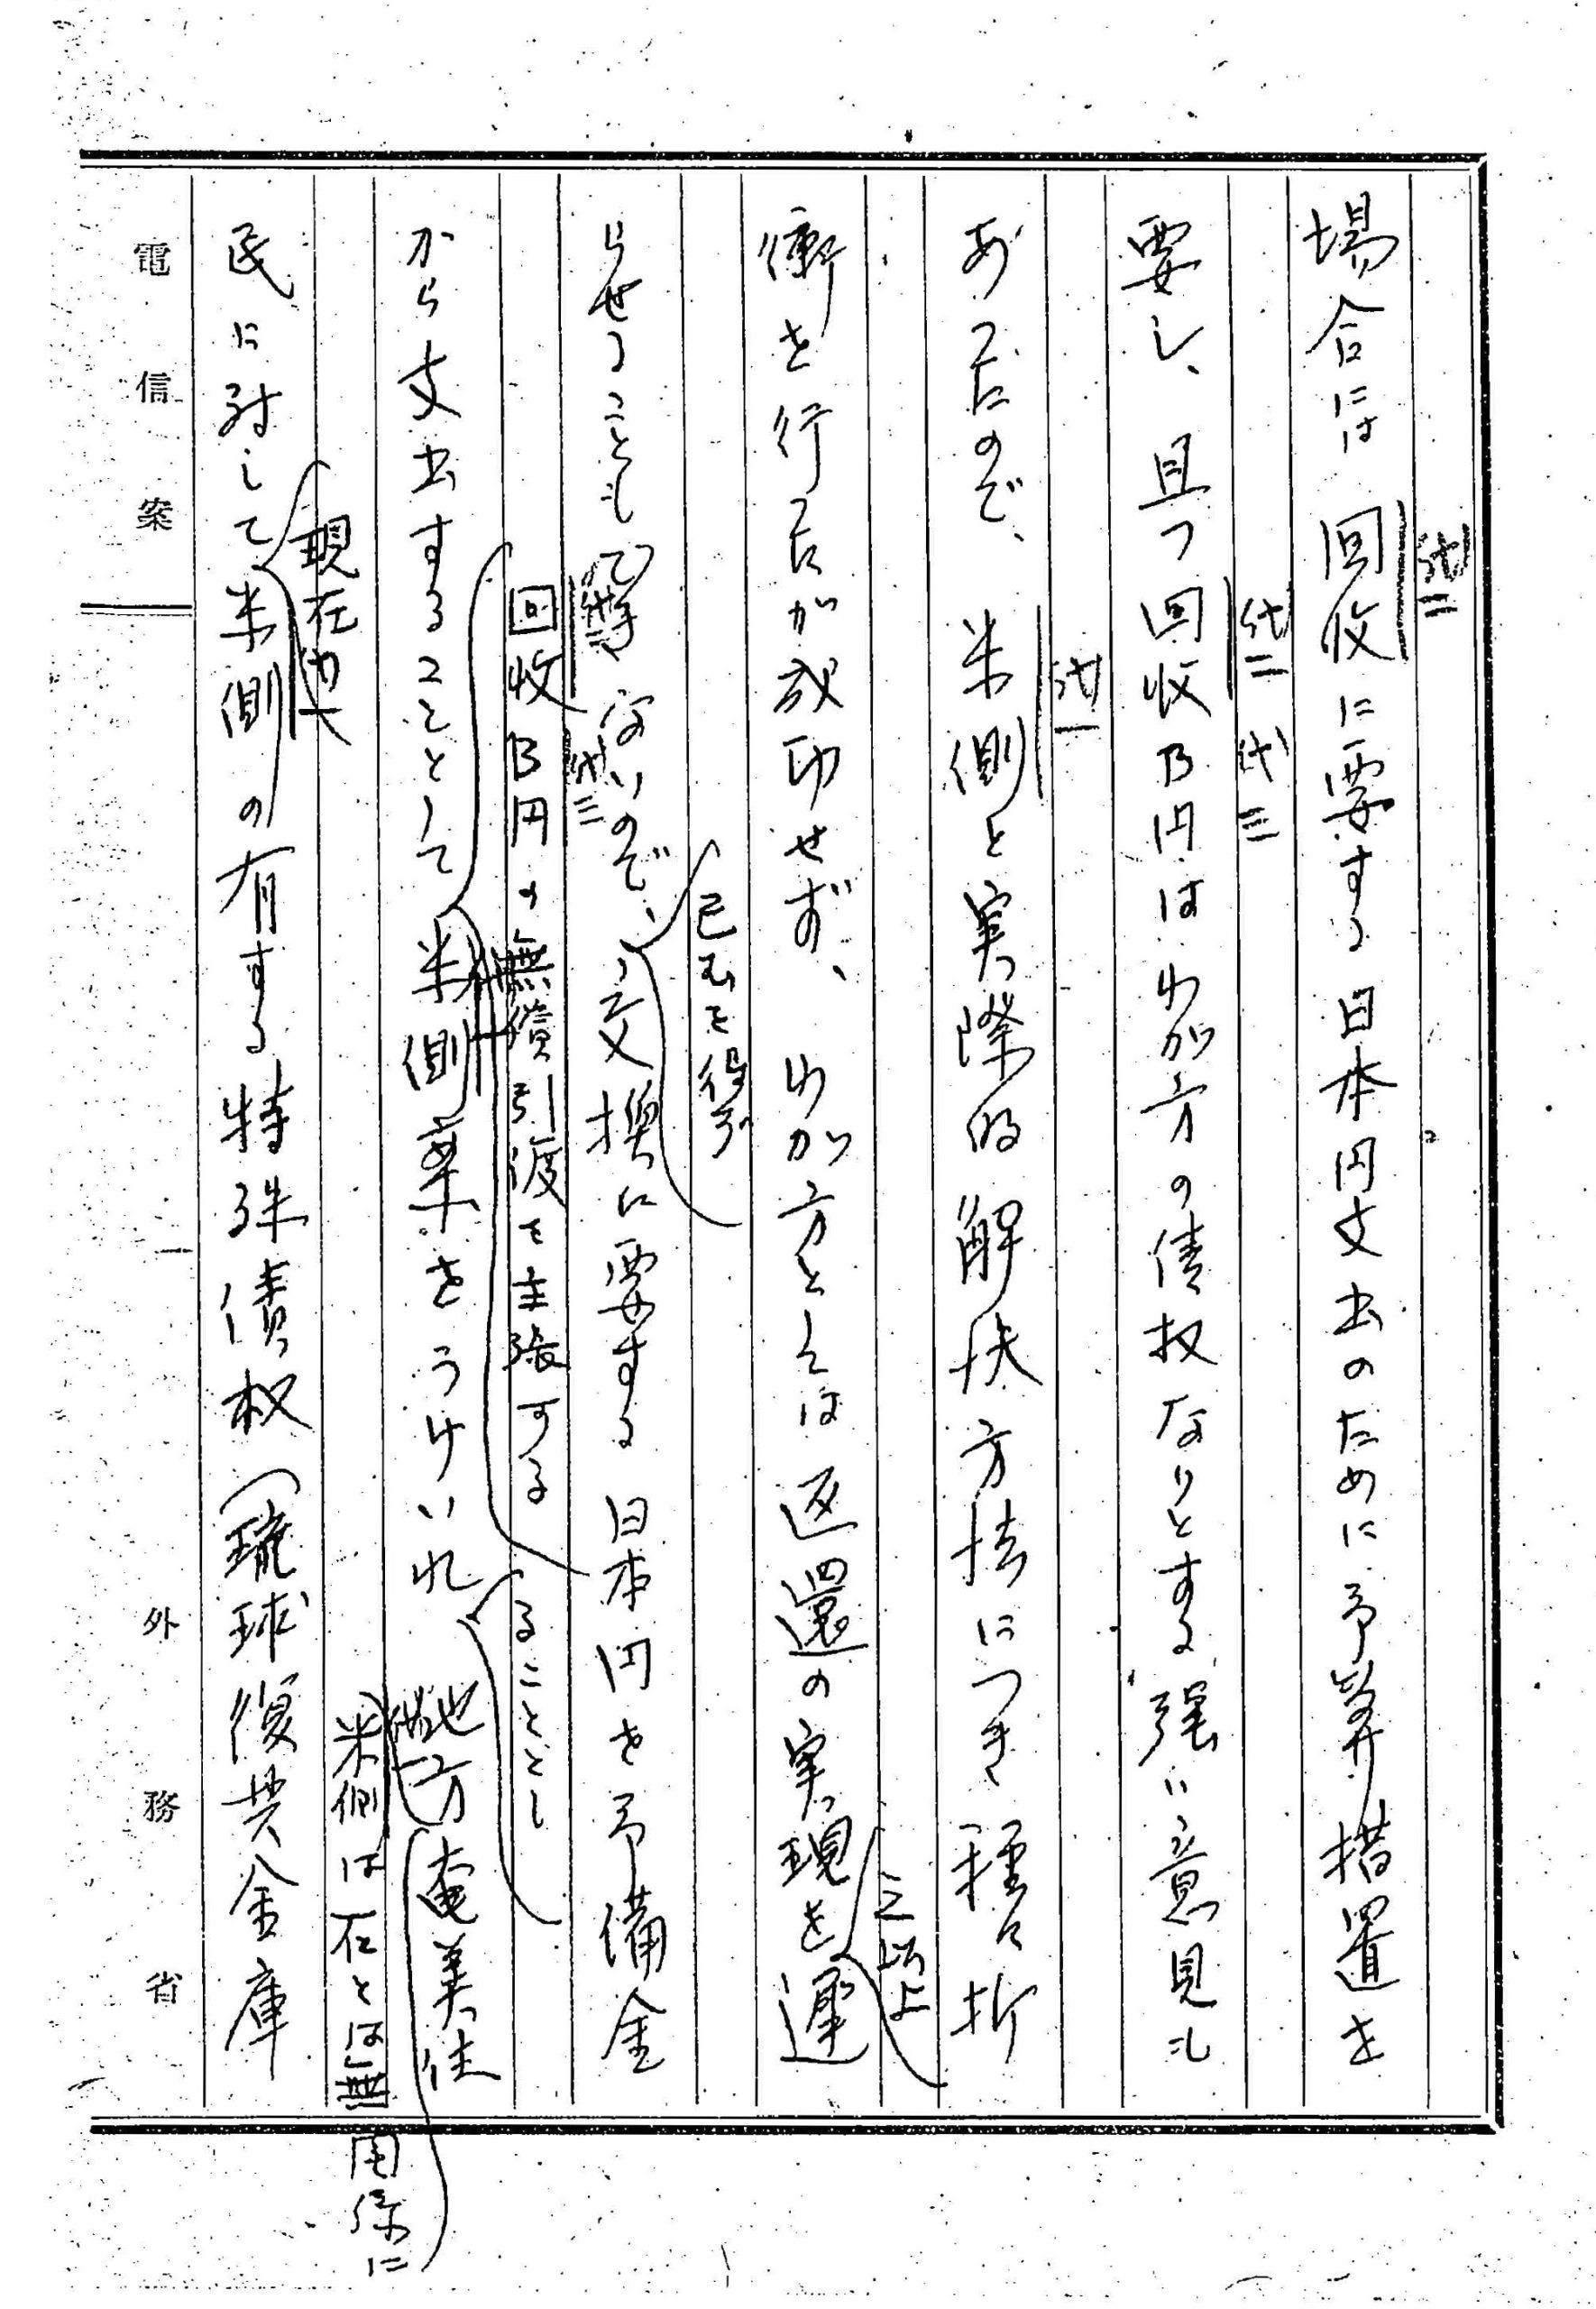 代二
場合には回收に要する日本円支出のために予算措置を
代二 代三
要し、且つ回收B円はわが方の債权なりとする強い意見も
代一
あつたので、米側と実際的解決方法につき種々折
之以上
衝を行つたが成功せず、わが方としては返還の実現を遅
已むを得ず
らせることもできないので、交換に要する日本円を予備金
代三
回收B円の無償引渡を主張する
ることとし
から支出することとして米側案をうけいれ 地方奄美住
米側は右とは無関係に
現在
民に対して米側の有する特殊債权(琉球復興金庫
電信案
外務省